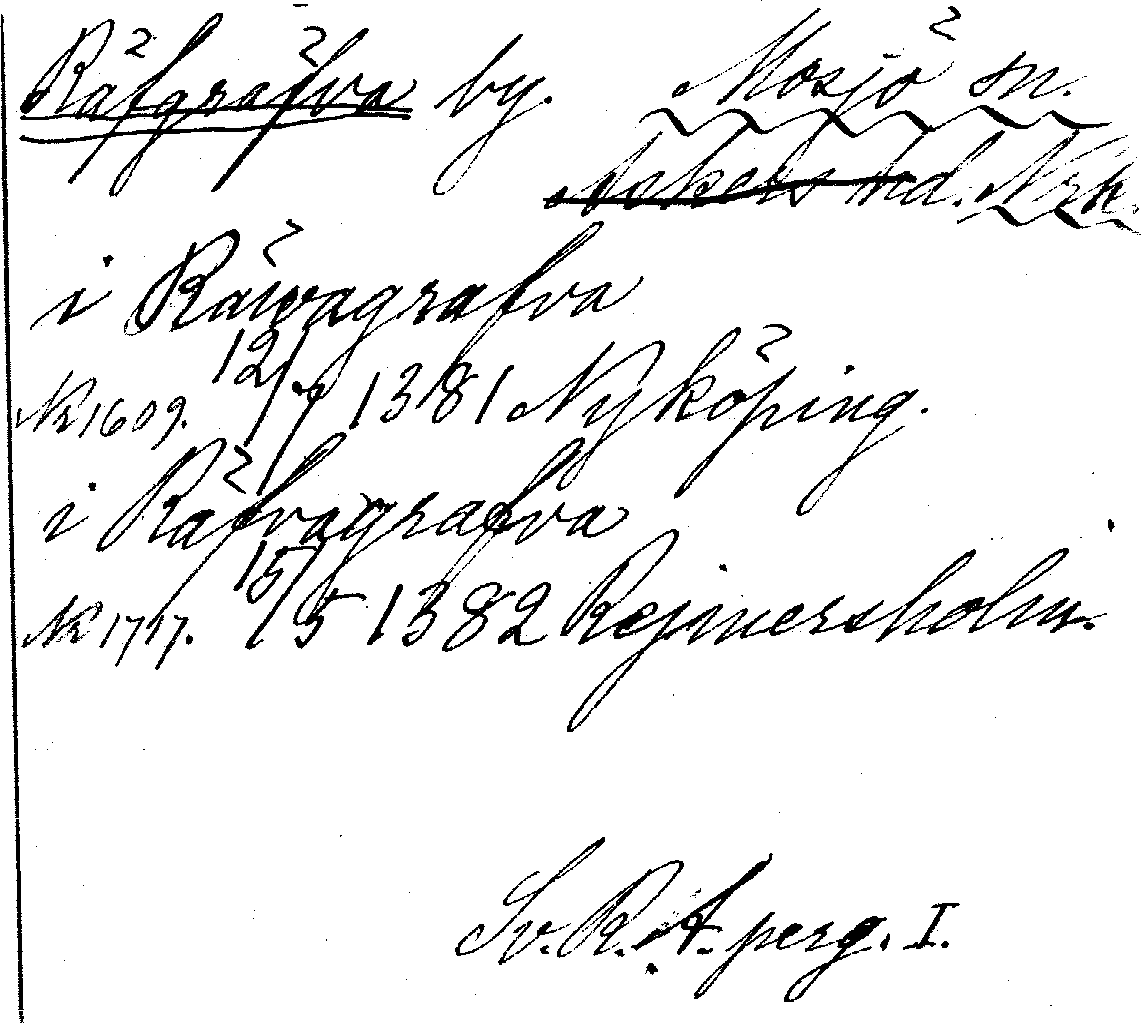 Räfgräfva by. Mosjö sn.
Askers hd. Nrk.
i Räwagrafva
Nr 1609. 12/7 1381 Nyköping.
i Räfvagrafva
Nr 1717. 15/5 1382 Rejmersholm.
Sv. R. A. perg. I.